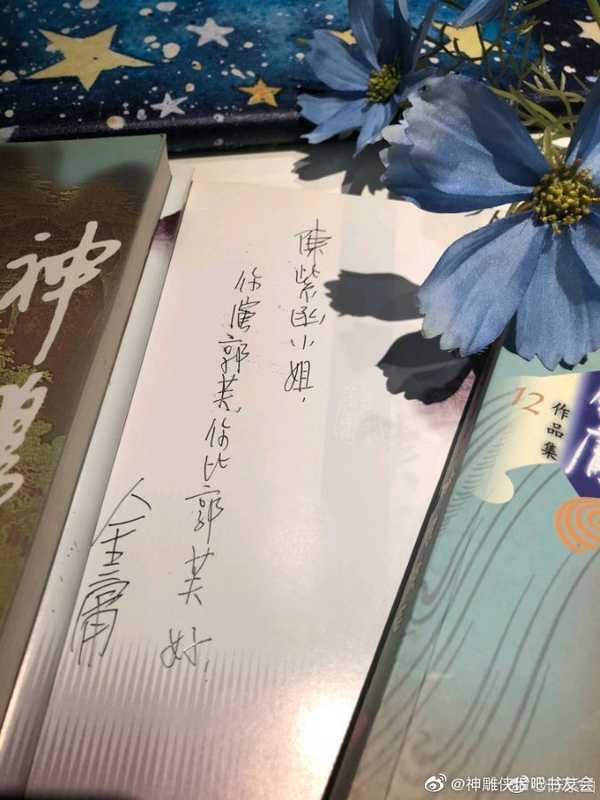 陳紫函小姐,
你演郭芙,你比郭芙
好.
金庸
神鵰
12
作品集
@神雕侠侣吧书友会